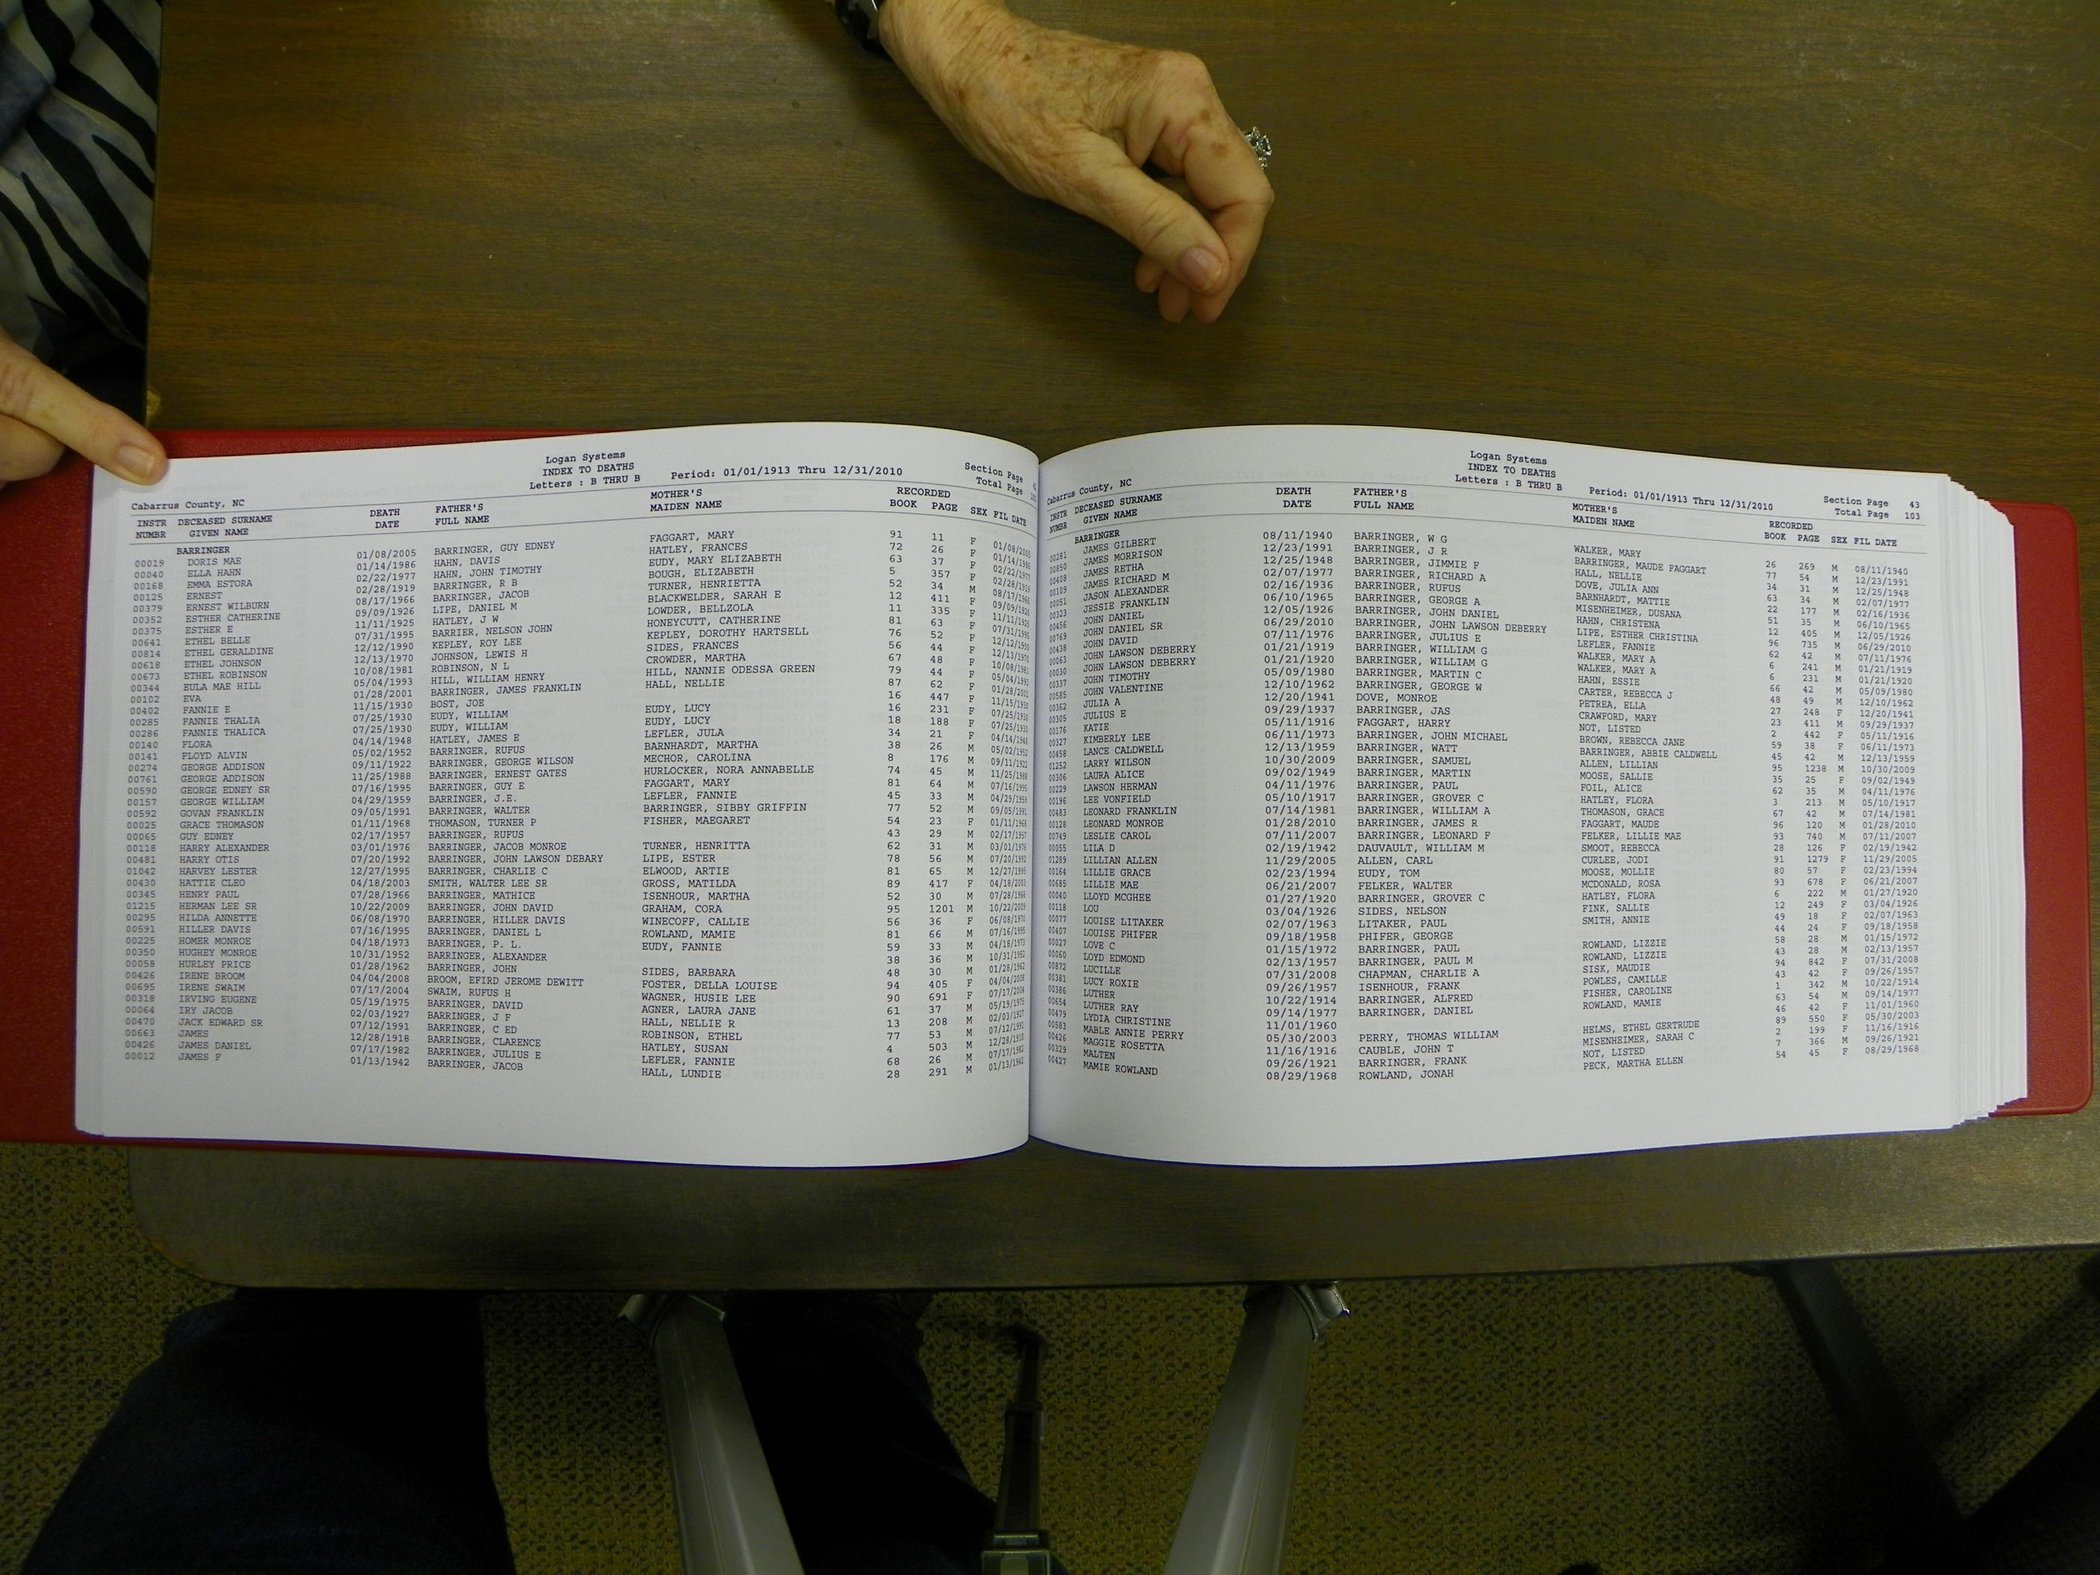 Logan Systems
INDEX TO DEATHS
Letters : B THRU B Period: 01/01/1913 Thru 12/31/2010
Section Page
Total Page
Cabarrus County, NC
INSTR DECEASED SURNAME DEATH FATHER'S MOTHER'S RECORDED
NUMBR GIVEN NAME DATE FULL NAME MAIDEN NAME BOOK PAGE SEX FIL DATE
BARRINGER
00019 DORIS MAE 01/08/2005 BARRINGER, GUY EDNEY FAGGART, MARY 91 11 F 01/08/2005
00040 ELLA HAHN 01/14/1986 HAHN, DAVIS HATLEY, FRANCES 72 26 F 01/14/1986
00168 EMMA ESTORA 02/22/1977 HAHN, JOHN TIMOTHY EUDY, MARY ELIZABETH 63 37 F 02/22/1977
00125 ERNEST 02/28/1919 BARRINGER, R B BOUGH, ELIZABETH 5 357 M 02/28/1919
00379 ERNEST WILBURN 08/17/1966 BARRINGER, JACOB TURNER, HENRIETTA 52 34 M 08/17/1966
00352 ESTHER CATHERINE 09/09/1926 LIPE, DANIEL M BLACKWELDER, SARAH E 12 411 F 09/09/1926
00375 ESTHER E 11/11/1925 HATLEY, J W LOWDER, BELLZOLA 11 335 F 11/11/1925
00641 ETHEL BELLE 07/31/1995 BARRIER, NELSON JOHN HONEYCUTT, CATHERINE 81 63 F 07/31/1995
00814 ETHEL GERALDINE 12/12/1990 KEPLEY, ROY LEE KEPLEY, DOROTHY HARTSELL 76 52 F 12/12/1990
00618 ETHEL JOHNSON 12/13/1970 JOHNSON, LEWIS H SIDES, FRANCES 56 44 F 12/13/1970
00673 ETHEL ROBINSON 10/08/1981 ROBINSON, N L CROWDER, MARTHA 67 48 F 10/08/1981
00344 EULA MAE HILL 05/04/1993 HILL, WILLIAM HENRY HILL, NANNIE ODESSA GREEN 79 44 F 05/04/1993
00102 EVA 01/28/2001 BARRINGER, JAMES FRANKLIN HALL, NELLIE 87 62 F 01/28/2001
00402 FANNIE E 11/15/1930 BOST, JOE 16 447 F 11/15/1930
00285 FANNIE THALIA 07/25/1930 EUDY, WILLIAM EUDY, LUCY 16 231 F 07/25/1930
00286 FANNIE THALICA 07/25/1930 EUDY, WILLIAM EUDY, LUCY 18 188 F 07/25/1930
00140 FLORA 04/14/1948 HATLEY, JAMES E LEFLER, JULA 34 21 F 04/14/1948
00141 FLOYD ALVIN 05/02/1952 BARRINGER, RUFUS BARNHARDT, MARTHA 38 26 M 05/02/1952
00274 GEORGE ADDISON 09/11/1922 BARRINGER, GEORGE WILSON MECHOR, CAROLINA 8 176 M 09/11/1922
00761 GEORGE ADDISON 11/25/1988 BARRINGER, ERNEST GATES HURLOCKER, NORA ANNABELLE 74 45 M 11/25/1988
00590 GEORGE EDNEY SR 07/16/1995 BARRINGER, GUY E FAGGART, MARY 81 64 M 07/16/1995
00157 GEORGE WILLIAM 04/29/1959 BARRINGER, J.E. LEFLER, FANNIE 45 33 M 04/29/1959
00592 GOVAN FRANKLIN 09/05/1991 BARRINGER, WALTER BARRINGER, SIBBY GRIFFIN 77 52 M 09/05/1991
00025 GRACE THOMASON 01/11/1968 THOMASON, TURNER P FISHER, MAEGARET 54 23 F 01/11/1968
00065 GUY EDNEY 02/17/1957 BARRINGER, RUFUS 43 29 M 02/17/1957
00118 HARRY ALEXANDER 03/01/1976 BARRINGER, JACOB MONROE TURNER, HENRITTA 62 31 M 03/01/1976
00481 HARRY OTIS 07/20/1992 BARRINGER, JOHN LAWSON DEBARY LIPE, ESTER 78 56 M 07/20/1992
01042 HARVEY LESTER 12/27/1995 BARRINGER, CHARLIE C ELWOOD, ARTIE 81 65 M 12/27/1995
00430 HATTIE CLEO 04/18/2003 SMITH, WALTER LEE SR GROSS, MATILDA 89 417 F 04/18/2003
00345 HENRY PAUL 07/28/1966 BARRINGER, MATHICE ISENHOUR, MARTHA 52 30 M 07/28/1966
01215 HERMAN LEE SR 10/22/2009 BARRINGER, JOHN DAVID GRAHAM, CORA 95 1201 M 10/22/2009
00295 HILDA ANNETTE 06/08/1970 BARRINGER, HILLER DAVIS WINECOFF, CALLIE 56 36 F 06/08/1970
00591 HILLER DAVIS 07/16/1995 BARRINGER, DANIEL L ROWLAND, MAMIE 81 66 M 07/16/1995
00225 HOMER MONROE 04/18/1973 BARRINGER, P. L. EUDY, FANNIE 59 33 M 04/18/1973
00350 HUGHEY MONROE 10/31/1952 BARRINGER, ALEXANDER 38 36 M 10/31/1952
00058 HURLEY PRICE 01/28/1962 BARRINGER, JOHN SIDES, BARBARA 48 30 M 01/28/1962
00426 IRENE BROOM 04/04/2008 BROOM, EFIRD JEROME DEWITT FOSTER, DELLA LOUISE 94 405 F 04/04/2008
00695 IRENE SWAIM 07/17/2004 SWAIM, RUFUS H WAGNER, HUSIE LEE 90 691 F 07/17/2004
00318 IRVING EUGENE 05/19/1975 BARRINGER, DAVID AGNER, LAURA JANE 61 37 M 05/19/1975
00064 IRY JACOB 02/03/1927 BARRINGER, J F HALL, NELLIE R 13 208 M 02/03/1927
00470 JACK EDWARD SR 07/12/1991 BARRINGER, C ED ROBINSON, ETHEL 77 53 M 07/12/1991
00663 JAMES 12/28/1918 BARRINGER, CLARENCE HATLEY, SUSAN 4 503 M 12/28/1918
00426 JAMES DANIEL 07/17/1982 BARRINGER, JULIUS E LEFLER, FANNIE 68 26 M 07/17/1982
00012 JAMES F 01/13/1942 BARRINGER, JACOB HALL, LUNDIE 28 291 M 01/13/1942
Logan Systems
INDEX TO DEATHS
Letters : B THRU B Period: 01/01/1913 Thru 12/31/2010
Section Page 43
Total Page 103
Cabarrus County, NC
INSTR DECEASED SURNAME DEATH FATHER'S MOTHER'S RECORDED
NUMBR GIVEN NAME DATE FULL NAME MAIDEN NAME BOOK PAGE SEX FIL DATE
BARRINGER
00281 JAMES GILBERT 08/11/1940 BARRINGER, W G WALKER, MARY 26 269 M 08/11/1940
00850 JAMES MORRISON 12/23/1991 BARRINGER, J R BARRINGER, MAUDE FAGGART 77 54 M 12/23/1991
00408 JAMES RETHA 12/25/1948 BARRINGER, JIMMIE F HALL, NELLIE 34 31 M 12/25/1948
00109 JAMES RICHARD M 02/07/1977 BARRINGER, RICHARD A DOVE, JULIA ANN 63 34 M 02/07/1977
00051 JASON ALEXANDER 02/16/1936 BARRINGER, RUFUS BARNHARDT, MATTIE 22 177 M 02/16/1936
00323 JESSIE FRANKLIN 06/10/1965 BARRINGER, GEORGE A MISENHEIMER, DUSANA 51 35 M 06/10/1965
00456 JOHN DANIEL 12/05/1926 BARRINGER, JOHN DANIEL HAHN, CHRISTENA 12 405 M 12/05/1926
00769 JOHN DANIEL SR 06/29/2010 BARRINGER, JOHN LAWSON DEBERRY LIPE, ESTHER CHRISTINA 96 735 M 06/29/2010
00438 JOHN DAVID 07/11/1976 BARRINGER, JULIUS E LEFLER, FANNIE 62 42 M 07/11/1976
00063 JOHN LAWSON DEBERRY 01/21/1919 BARRINGER, WILLIAM G WALKER, MARY A 6 241 M 01/21/1919
00030 JOHN LAWSON DEBERRY 01/21/1920 BARRINGER, WILLIAM G WALKER, MARY A 6 231 M 01/21/1920
00337 JOHN TIMOTHY 05/09/1980 BARRINGER, MARTIN C HAHN, ESSIE 66 42 M 05/09/1980
00585 JOHN VALENTINE 12/10/1962 BARRINGER, GEORGE W CARTER, REBECCA J 48 49 M 12/10/1962
00362 JULIA A 12/20/1941 DOVE, MONROE PETREA, ELLA 27 248 F 12/20/1941
00305 JULIUS E 09/29/1937 BARRINGER, JAS CRAWFORD, MARY 23 411 M 09/29/1937
00176 KATIE 05/11/1916 FAGGART, HARRY NOT, LISTED 2 442 F 05/11/1916
00327 KIMBERLY LEE 06/11/1973 BARRINGER, JOHN MICHAEL BROWN, REBECCA JANE 59 38 F 06/11/1973
00458 LANCE CALDWELL 12/13/1959 BARRINGER, WATT BARRINGER, ABBIE CALDWELL 45 42 M 12/13/1959
01252 LARRY WILSON 10/30/2009 BARRINGER, SAMUEL ALLEN, LILLIAN 95 1238 M 10/30/2009
00306 LAURA ALICE 09/02/1949 BARRINGER, MARTIN MOOSE, SALLIE 35 25 F 09/02/1949
00229 LAWSON HERMAN 04/11/1976 BARRINGER, PAUL FOIL, ALICE 62 35 M 04/11/1976
00196 LEE VONFIELD 05/10/1917 BARRINGER, GROVER C HATLEY, FLORA 3 213 M 05/10/1917
00483 LEONARD FRANKLIN 07/14/1981 BARRINGER, WILLIAM A THOMASON, GRACE 67 42 M 07/14/1981
00128 LEONARD MONROE 01/28/2010 BARRINGER, JAMES R FAGGART, MAUDE 96 120 M 01/28/2010
00749 LESLIE CAROL 07/11/2007 BARRINGER, LEONARD F FELKER, LILLIE MAE 93 740 M 07/11/2007
00055 LILA D 02/19/1942 DAUVAULT, WILLIAM M SMOOT, REBECCA 28 126 F 02/19/1942
01289 LILLIAN ALLEN 11/29/2005 ALLEN, CARL CURLEE, JODI 91 1279 F 11/29/2005
00164 LILLIE GRACE 02/23/1994 EUDY, TOM MOOSE, MOLLIE 80 57 F 02/23/1994
00685 LILLIE MAE 06/21/2007 FELKER, WALTER MCDONALD, ROSA 93 678 F 06/21/2007
00040 LLOYD MCGHEE 01/27/1920 BARRINGER, GROVER C HATLEY, FLORA 6 222 M 01/27/1920
00118 LOU 03/04/1926 SIDES, NELSON FINK, SALLIE 12 249 F 03/04/1926
00077 LOUISE LITAKER 02/07/1963 LITAKER, PAUL SMITH, ANNIE 49 18 F 02/07/1963
00407 LOUISE PHIFER 09/18/1958 PHIFER, GEORGE 44 24 F 09/18/1958
00027 LOVE C 01/15/1972 BARRINGER, PAUL ROWLAND, LIZZIE 58 28 M 01/15/1972
00060 LOYD EDMOND 02/13/1957 BARRINGER, PAUL M ROWLAND, LIZZIE 43 28 M 02/13/1957
00872 LUCILLE 07/31/2008 CHAPMAN, CHARLIE A SISK, MAUDIE 94 842 F 07/31/2008
00381 LUCY ROXIE 09/26/1957 ISENHOUR, FRANK POWLES, CAMILLE 43 42 F 09/26/1957
00386 LUTHER 10/22/1914 BARRINGER, ALFRED FISHER, CAROLINE 1 342 M 10/22/1914
00654 LUTHER RAY 09/14/1977 BARRINGER, DANIEL ROWLAND, MAMIE 63 54 M 09/14/1977
00479 LYDIA CHRISTINE 11/01/1960 46 42 F 11/01/1960
00583 MABLE ANNIE PERRY 05/30/2003 PERRY, THOMAS WILLIAM HELMS, ETHEL GERTRUDE 89 550 F 05/30/2003
00426 MAGGIE ROSETTA 11/16/1916 CAUBLE, JOHN T MISENHEIMER, SARAH C 2 199 F 11/16/1916
00329 MALTEN 09/26/1921 BARRINGER, FRANK NOT, LISTED 7 366 M 09/26/1921
00427 MAMIE ROWLAND 08/29/1968 ROWLAND, JONAH PECK, MARTHA ELLEN 54 45 F 08/29/1968